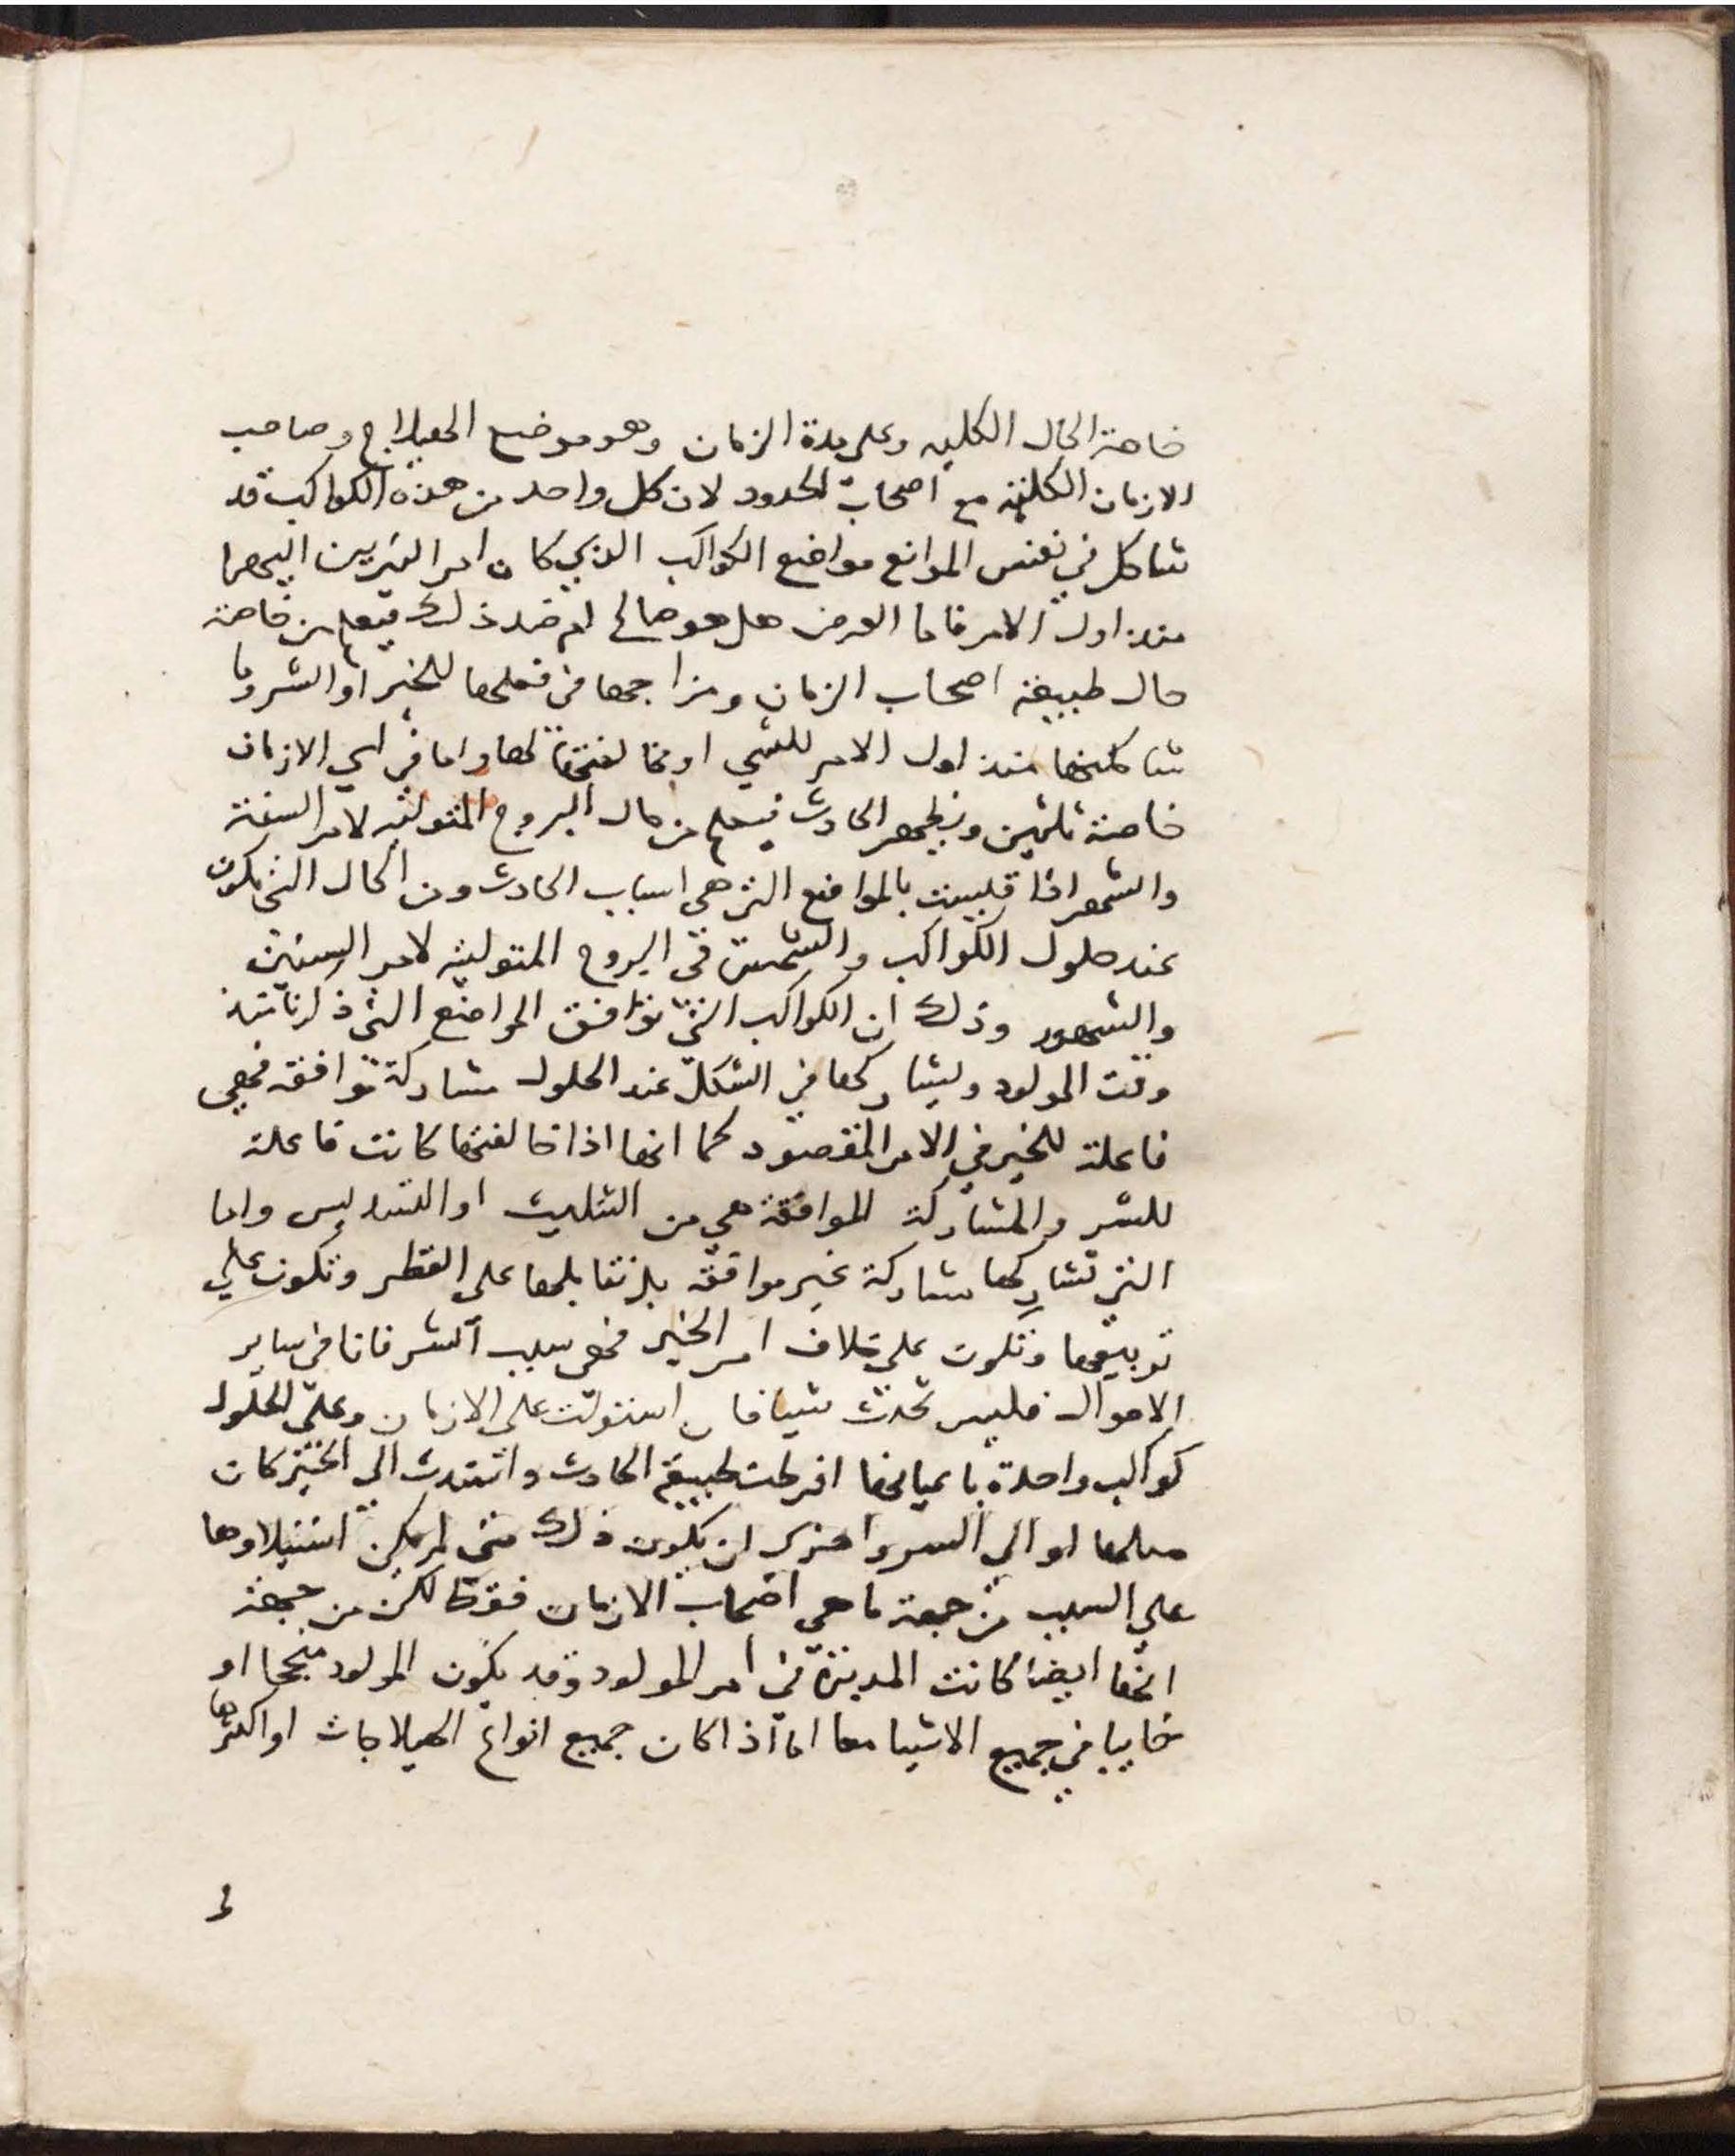 خاصة الحال الكلية وعلى مدة الزمان وهو موضع الهيلاج وصاحب
الازمان الكلية مع اصحاب الحدود لان كل واحد من هذه الكواكب قد
تشاكل في نفس المواضع مواضع الكواكب الذي كان امر النيرين اليهما
منذ اول الامر فاما العرض هل هو صالح ام ضد ذلك فيعلم من خاصة
حال طبيعة اصحاب الزمان ومزاجها في فعلها للخير او الشر وما
شاكلتها منذ اول الامر للشي او مخالفتها لها واما في اي الازمان
خاصة تلتمس ويظهر الحادث فيعلم من حال البروج المتولية لامر السنة
والشهر اذا قيست بالمواضع التي هي اسباب الحادث ومن الحال التي تكون
عند حلول الكواكب والشمس في البروج المتولية لامر السنين
والشهور وذلك ان الكواكب التي توافق المواضع التي ذكرنا منذ
وقت المولود ويشاركها في الشكل عند الحلول مشاركة توافقه فهي
فاعلة للخير في الامر المقصود كما انها اذا خالفتها كانت فاعلة
للشر والمشاركة الموافقة هي من التثليث او التسديس واما
التي تشاركها مشاركة غير موافقة بل تقابلها على القطر وتكون على
تربيعها وتكون على خلاف امر الخير فهي سبب الشر فاما في ساير
الاحوال فليس تحدث شيا فان استولت على الازمان وعلى الحلول
كواكب واحدة باعيانها افرطت طبيعة الحادث واشتدت الى الخير كان
ميلها او الى الشر واحرى ان يكون ذلك متى لم يكن استيلاوها
على السبب من جهة ما هي اصحاب الازمان فقط لكن من جهة
انها ايضا كانت المدبرة في امر المولود وقد يكون المولود منجحا او
خايبا في جميع الاشيا معا اما اذا كان جميع انواع الهيلاجات او اكثرها